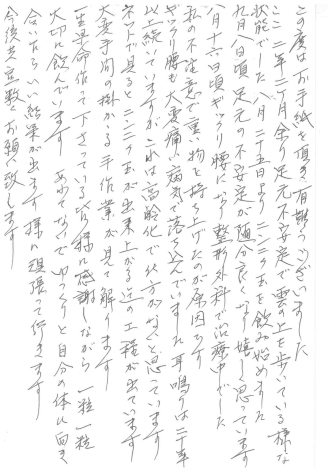 この度はお手紙を頂き有難うございました
ここ二年三ヶ月余り足元不安定で雲の上を歩いている様な
状態でした 八月二十五日より ニニラ玉を飲み始めました
九月八日頃 足元の不安定が随分良くなり嬉しく思っています
八月十六日頃ギックリ腰になり整形外科で治療中でした
私の不注意で重い物を持ち上げたのが原因です
ギックリ腰も大変痛い病気で落ち込んでいました 耳鳴りは二十年
以上続いていますが これは高齢化で仕方がないと思っています
ネットで見ると 玉が出来上がる迄の工程が出ています
大変手間の掛かる手作業が見て解ります
一生懸命作って下さっている皆様に感謝しながら 一粒一粒
大切に飲んでいます あわてないで ゆっくりと自分の体に向き
合いたい いい結果が出ます様に頑張って行きます
今後共宜敷くお願い致します